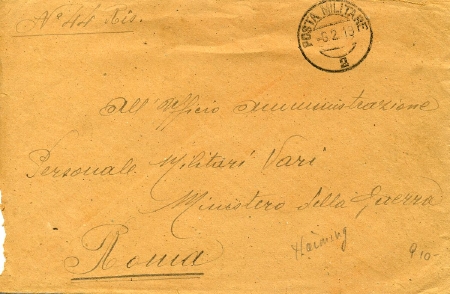 N° 44 bis.
POSTA MILITARE
-6.2.19
2
All' Ufficio Amministrazione
Personale Militari Vari
Ministero della Guerra
Roma
910-